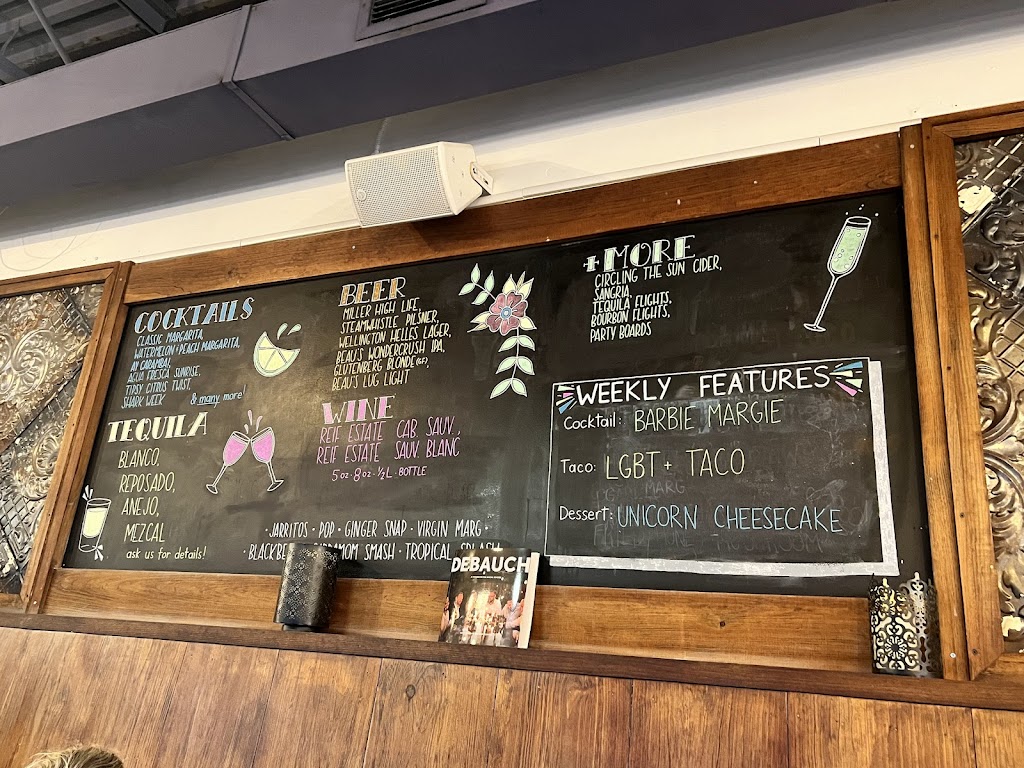 COCKTAILS
CLASSIC MARGARITA,
WATERMELON + PEACH MARGARITA,
AY CARAMBA!,
AGUA FRESCA SUNRISE,
TIPSY CITRUS TWIST,
SHARK WEEK & many more!
TEQUILA
BLANCO,
REPOSADO,
AÑEJO,
MEZCAL
ask us for details!
BEER
MILLER HIGH LIFE,
STEAMWHISTLE PILSNER,
WELLINGTON HELLES LAGER,
BEAU'S WONDERCRUSH IPA,
GLUTENBERG BLONDE (GF),
BEAU'S LUG LIGHT
WINE
REIF ESTATE CAB. SAUV.,
REIF ESTATE SAUV. BLANC
5 oz · 8 oz · ½ L · BOTTLE
· JARRITOS · POP · GINGER SNAP · VIRGIN MARG ·
SMASH · TROPICAL SPLASH
+ MORE
CIRCLING THE SUN CIDER,
SANGRIA,
TEQUILA FLIGHTS,
BOURBON FLIGHTS,
PARTY BOARDS
WEEKLY FEATURES
Cocktail: BARBIE MARGIE
Taco: LGBT+ TACO
Dessert: UNICORN CHEESECAKE
DEBAUCH